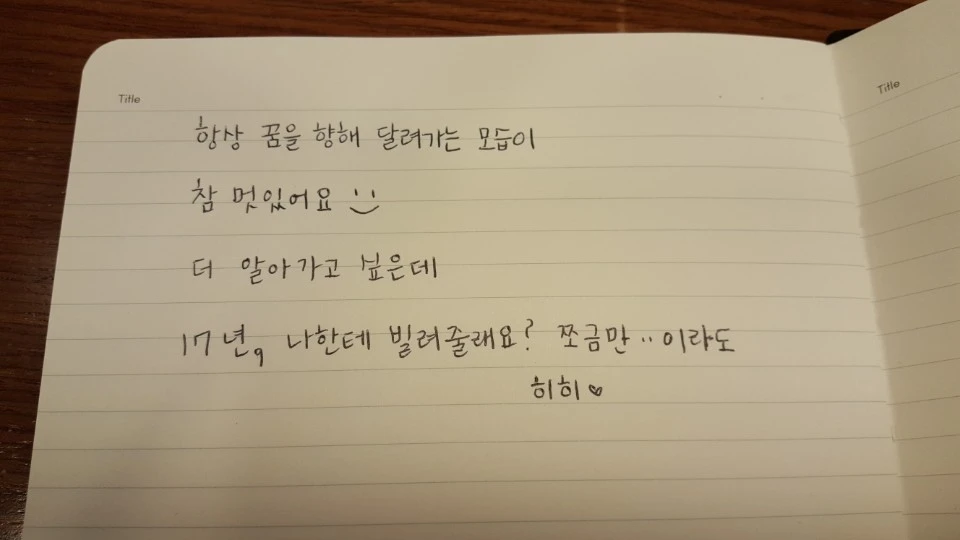 Title
Title
항상 꿈을 향해 달려가는 모습이
참 멋있어요 :)
더 알아가고 싶은데
17년, 나한테 빌려줄래요? 쪼금만..이라도
히히♥